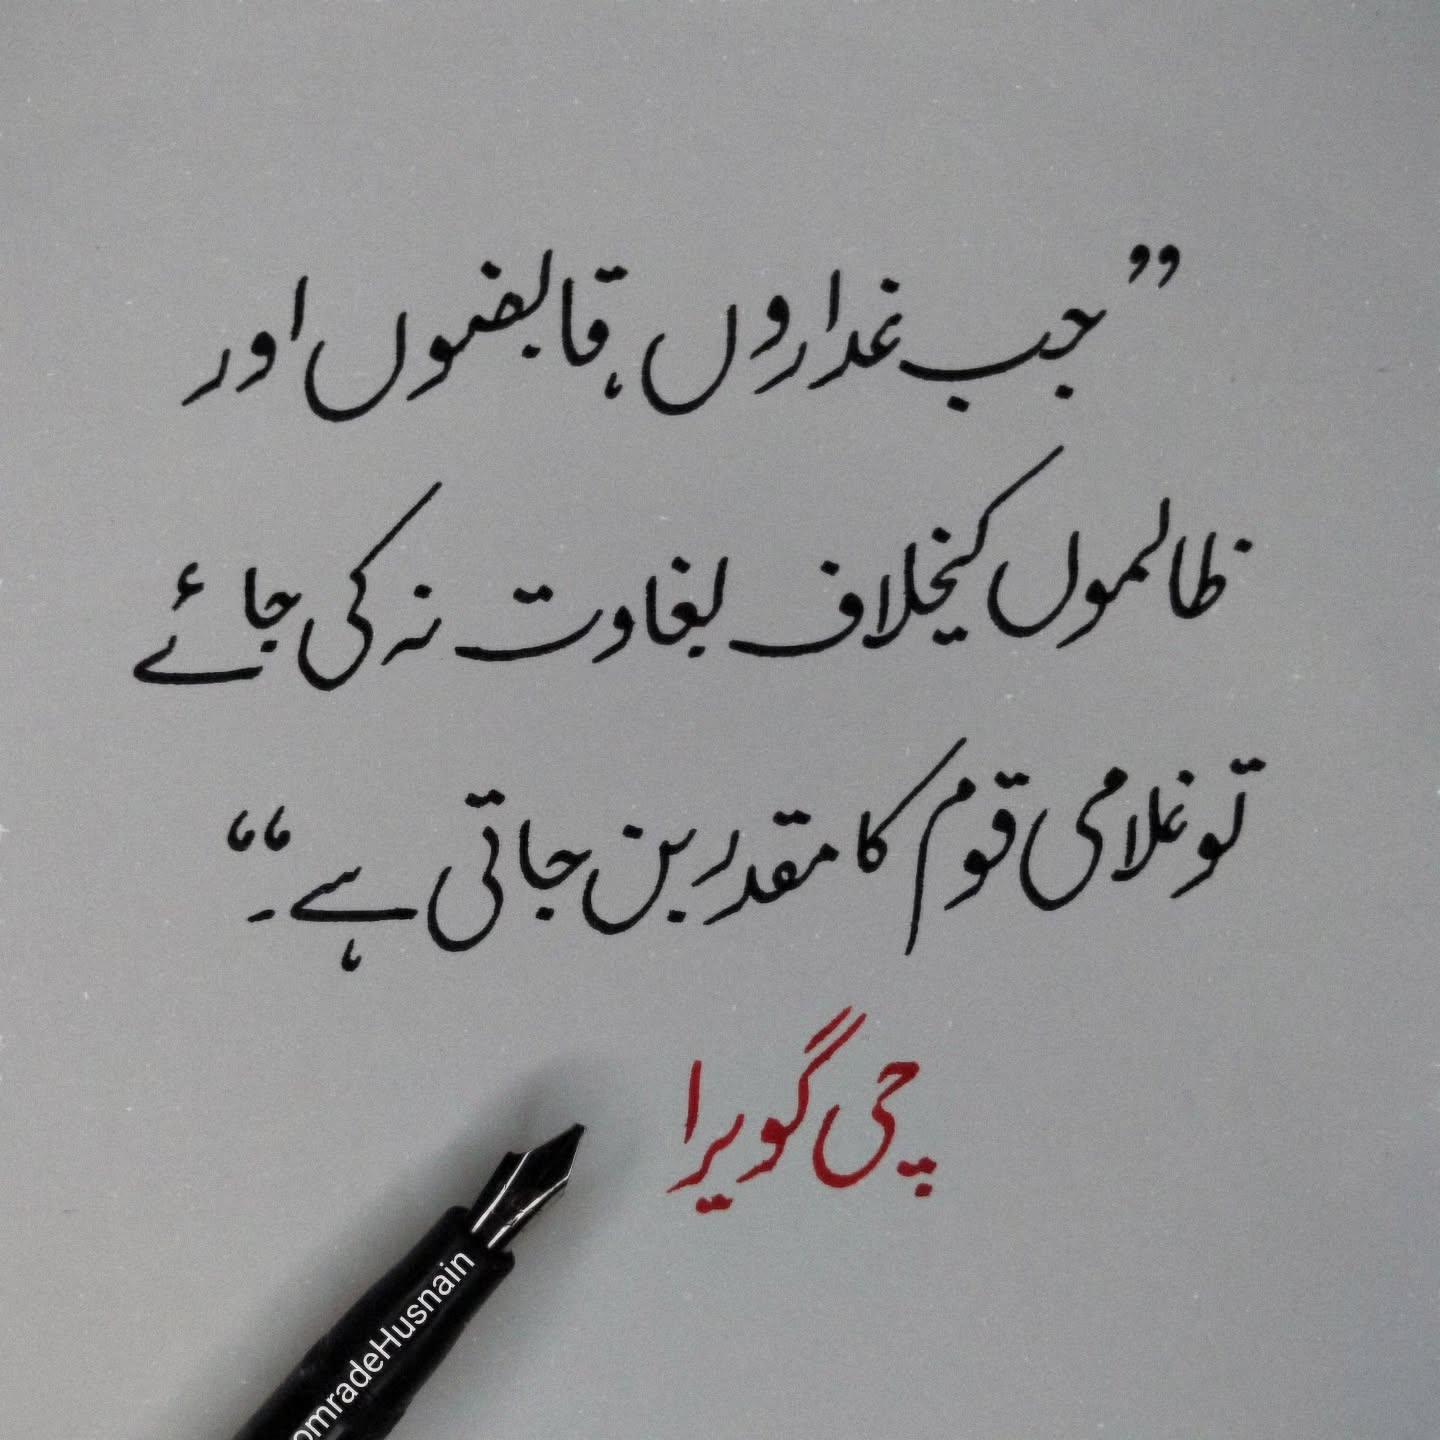 ”جب غداروں، قابضوں اور
ظالموں کیخلاف بغاوت نہ کی جائے
تو غلامی قوم کا مقدر بن جاتی ہے۔“
چی گویرا
omradeHusnain